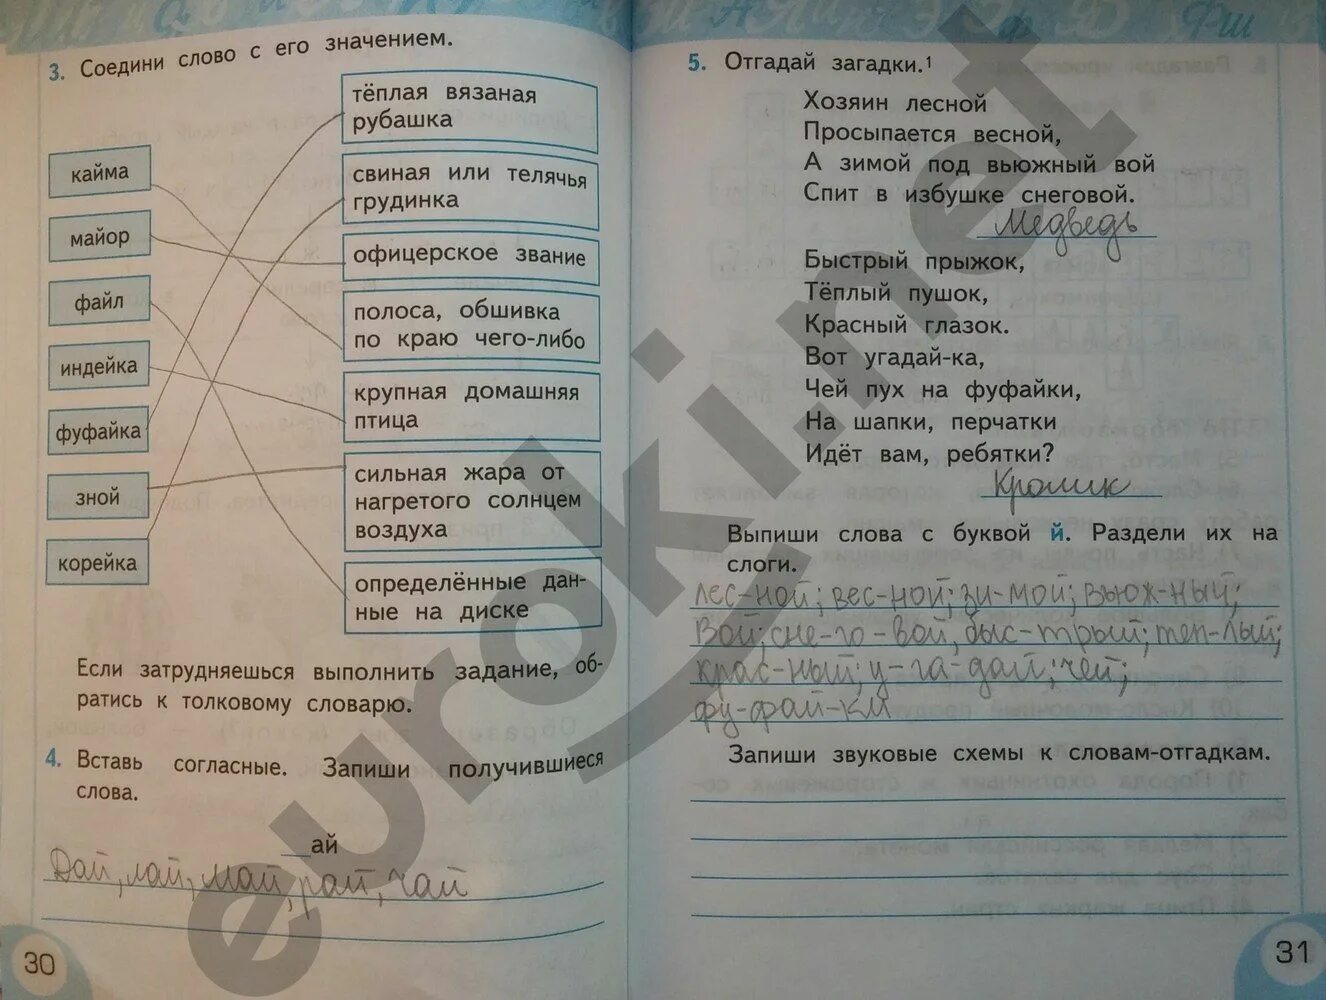 3. Соедини слово с его значением.
кайма
майор
файл
индейка
фуфайка
зной
корейка
тёплая вязаная
рубашка
свиная или телячья
грудинка
офицерское звание
полоса, обшивка
по краю чего-либо
крупная домашняя
птица
сильная жара от
нагретого солнцем
воздуха
определённые дан-
ные на диске
Если затрудняешься выполнить задание, об-
ратись к толковому словарю.
4. Вставь согласные. Запиши получившиеся
слова.
__ай
Дай, лай, май, рай, чай
30
5. Отгадай загадки.¹
Хозяин лесной
Просыпается весной,
А зимой под вьюжный вой
Спит в избушке снеговой.
Медведь
Быстрый прыжок,
Тёплый пушок,
Красный глазок.
Вот угадай-ка,
Чей пух на фуфайки,
На шапки, перчатки
Идёт вам, ребятки?
Кролик
Выпиши слова с буквой й. Раздели их на
слоги.
лес-ной; вес-ной; зи-мой; вьюж-ный;
Вой; сне-го-вой, быс-трый; теп-лый;
крас-ный; у-га-дай; чей;
фу-фай-ки
Запиши звуковые схемы к словам-отгадкам.
31
euroki.net